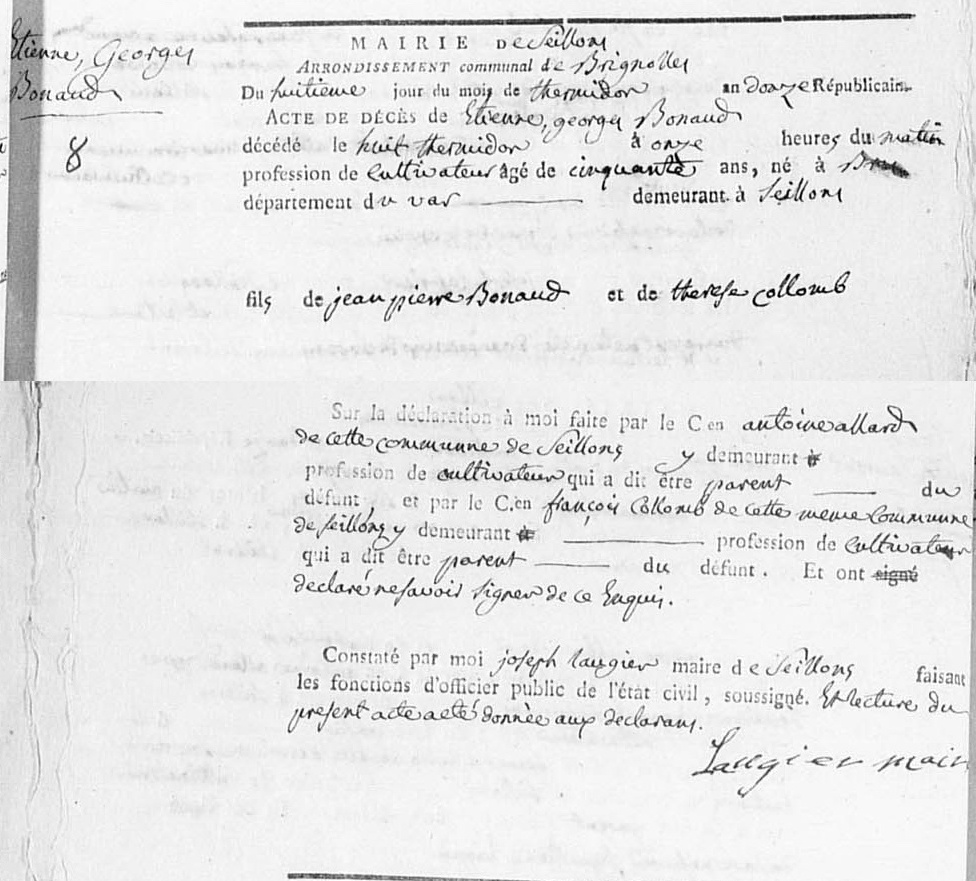 Etienne, Georges
Bonaud
8
MAIRIE De Seillons
ARRONDISSEMENT communal de Brignolles
Du huitieme jour du mois de thermidor an donze Républicain.
ACTE DE DÉCÈS de Etienne, georges Bonaud
décédé le huit thermidor à onze heures du matin
profession de Cultivateur âgé de cinquante ans, né à
département du var demeurant à Seillons
fils de jean pierre Bonaud et de therese Collomb
Sur la déclaration à moi faite par le C en antoine allard
de cette communne de Seillons y demeurant
profession de cultivateur qui a dit être parent du
défunt, et par le C.en françois Collomb de cette meme Communne
de seillons y demeurant profession de Cultivateur
qui a dit être parent du défunt. Et ont signé
declaré ne savoir signer de ce Enquis.
Constaté par moi joseph Laugier maire de Seillons faisant
les fonctions d'officier public de l'état civil, soussigné. Et lecture du
present acte a eté donnée aux declarans.
Laugier maire